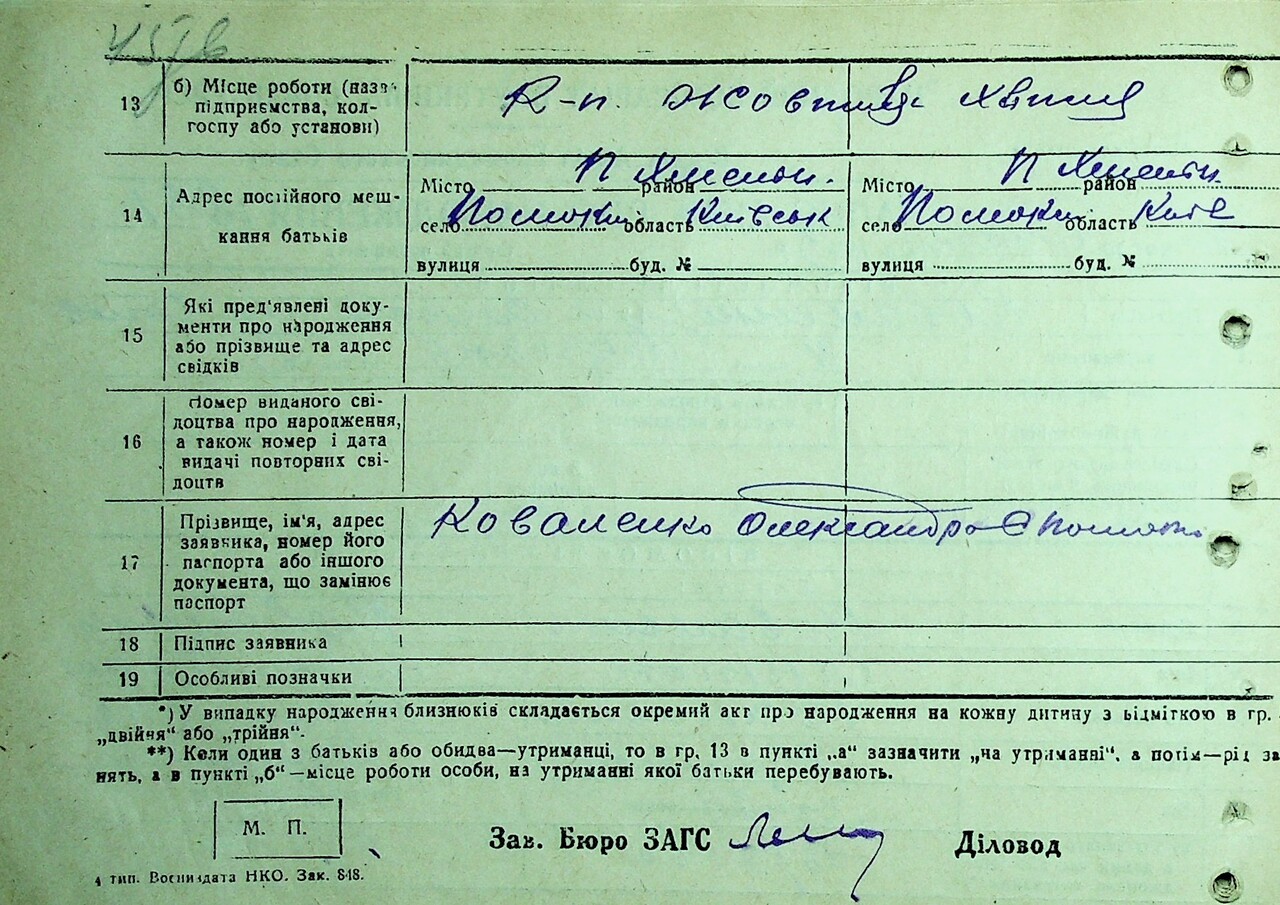 13
б) Місце роботи (назва
підприємства, кол-
госпу або установи)
К-п Жовтнева хвиля
14
Адрес постійного меш-
кання батьків
Місто район
село область Київськ
вулиця буд. №
Місто район
село область Київ
вулиця буд. №
15
Які пред'явлені доку-
менти про народження
або прізвище та адрес
свідків
16
Номер виданого сві-
доцтва про народження,
а також номер і дата
видачі повторних сві-
доцтв
17
Прізвище, ім'я, адрес
заявника, номер його
паспорта або іншого
документа, що замінює
паспорт
Коваленко Олександра
18
Підпис заявника
19
Особливі позначки
*) У випадку народження близнюків складається окремий акт про народження на кожну дитину з відміткою в гр.
„двійня“ або „трійня“.
**) Коли один з батьків або обидва—утриманці, то в гр. 13 в пункті „а“ зазначити „на утриманні“, а потім—рід за
нять, а в пункті „б“—місце роботи особи, на утриманні якої батьки перебувають.
М. П.
Зав. Бюро ЗАГС
Діловод
4 тип. Воениздата НКО. Зак. 848.